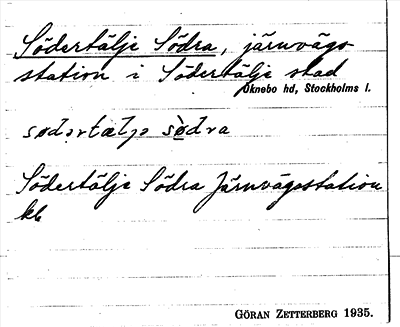 Södertälje Södra, järnvägs-
station i Södertälje stad
Öknebo hd, Stockholms l.
södra
Södertälje Södra Järnvägsstation
GÖRAN ZETTERBERG 1935.